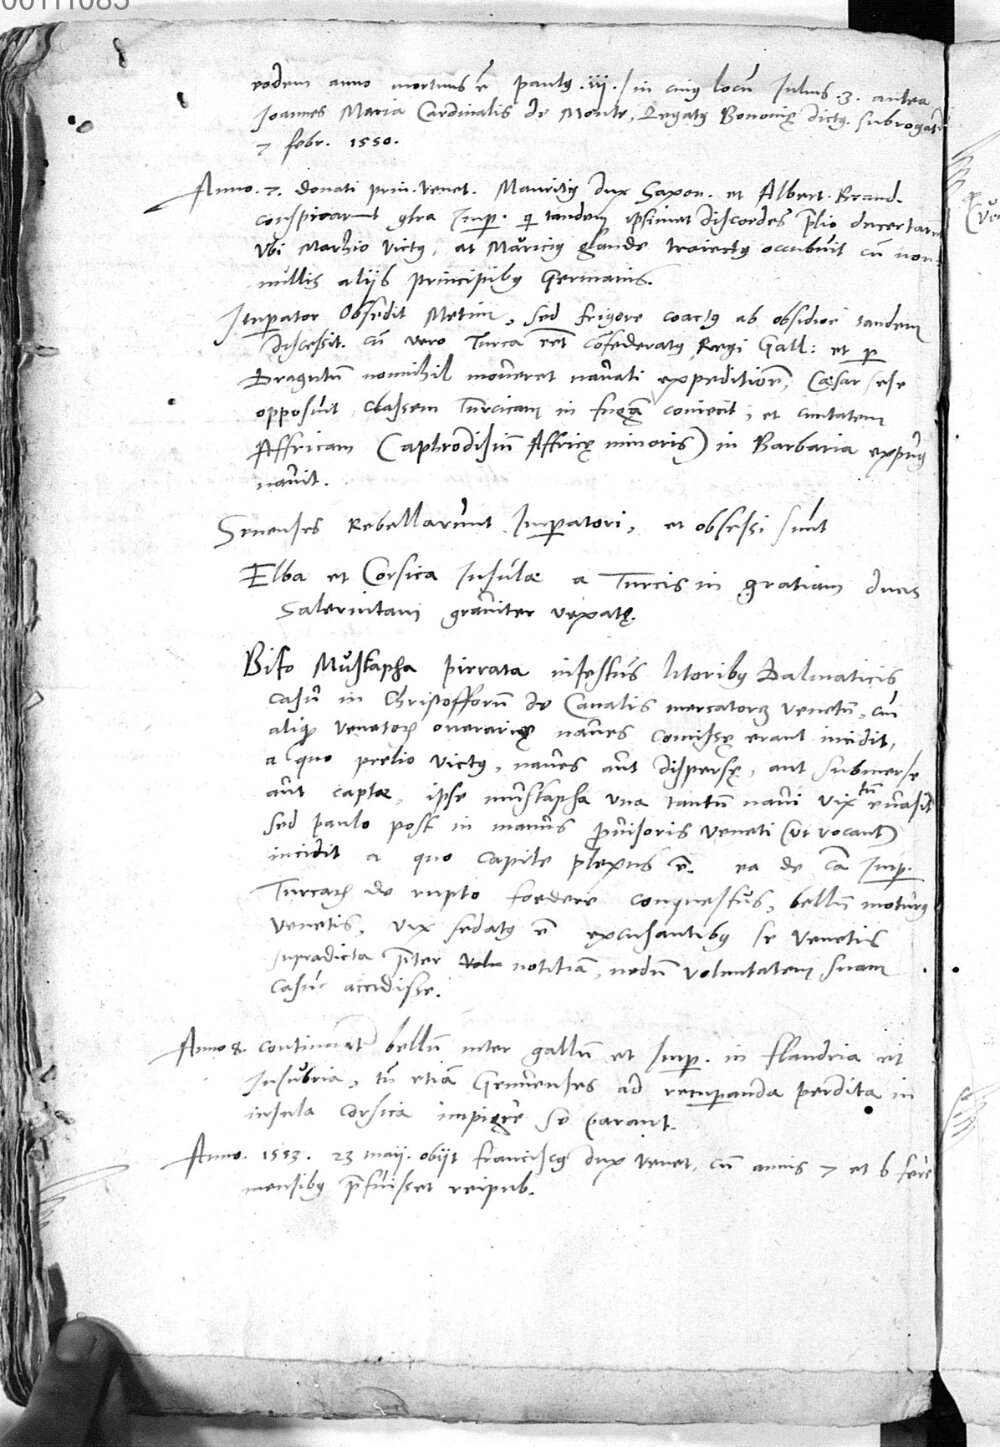 00111085
eodem anno mortuus ē paulꝰ .iij. / in cuiꝰ locū Iulius .3. antea
Joannes Maria Cardinalis de Monte, Legatꝰ Bononię dictꝰ. subrogat
7 febr. 1550.
Anno .7. Donati prin. Venet. Mauritiꝰ dux Saxon. et Albert. Brand.
conspirarunt 9tra Imp. qi tandem ipsimet discordes p̄lio decertarū
Vbi Marhio victꝰ, at Mauriciꝰ glande traiectꝰ occubuit cū non
nullis alijs principibꝰ Germanis.
Imperator Obsedit Metim, sed frigore coactꝰ ab obsidioē tandem
discessit. cū vero Turca eēt cōfederatꝰ Regi Gall: et p
Dragutū nonnihil moveret navali expeditiōē, Cæsar sese
opposuit, classem Turcicam in fugā coniecit, et civitatem
Affricam (aphrodisiū Affricę minoris) in Barbaria expug
navit.
Senenses Rebellarunt Imperatori, et obsessi sunt
Elba et Corsica Insulæ a Turcis in gratiam ducis
Salernitani graviter vexatę.
Biso Mustapha pirrata infestus litoribꝰ Dalmaticis
casu in Christofforū de Canalis mercatorꝫ venetū, cui
aliqꝫ venetoꝝ onerarię naves comissę erant incidit,
a quo prelio victꝰ, naves aut dispersę, aut submerse
aut captæ, ipse mustapha una tantū navi vix tū evasit
sed paulo post in manus p̱visoris veneti (ut vocant)
incidit a quo capite plexus ē. ea de cā Imp.
Turcaꝝ de rupto foedere conquestus, bellū moturꝰ
venetis, vix sedatꝰ ē excusantibꝰ se Venetis
supradicta p̄ter volu notitiā, nedū voluntatem suam
casu accidisse.
Anno 8. continuat bellū inter gallū et Imp. in flandria et
Insubria, tū etiā Genuenses ad recuperanda perdita in
insula Corsica impigre se parant.
Anno. 1553. 23 maij. obijt franciscꝰ dux venet, cū annis 7 et 6 fere
mensibꝰ p̄fuisset reipub.